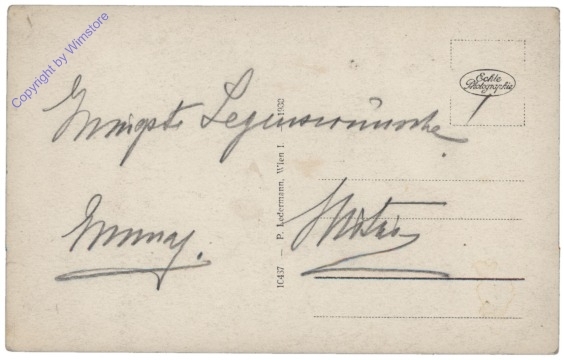 Copyright by Wimstore
Echte
Photographie
Innigste Segenswünsche
10437 — P. Ledermann, Wien I. — 1932
Emmy.